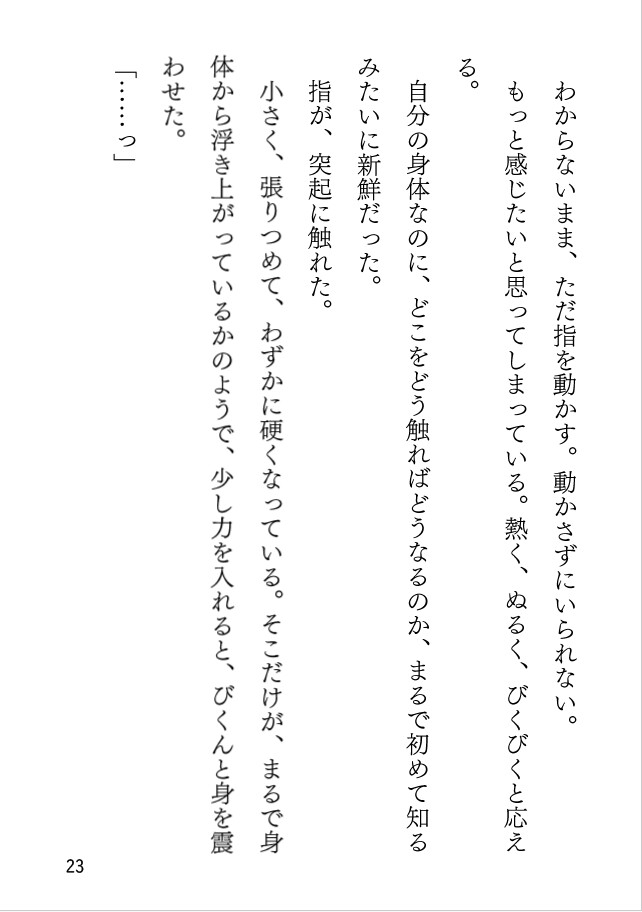 わからないまま、ただ指を動かす。動かさずにいられない。
もっと感じたいと思ってしまっている。熱く、ぬるく、びくびくと応え
る。
自分の身体なのに、どこをどう触ればどうなるのか、まるで初めて知る
みたいに新鮮だった。
指が、突起に触れた。
小さく、張りつめて、わずかに硬くなっている。そこだけが、まるで身
体から浮き上がっているかのようで、少し力を入れると、びくんと身を震
わせた。
「……っ」
23